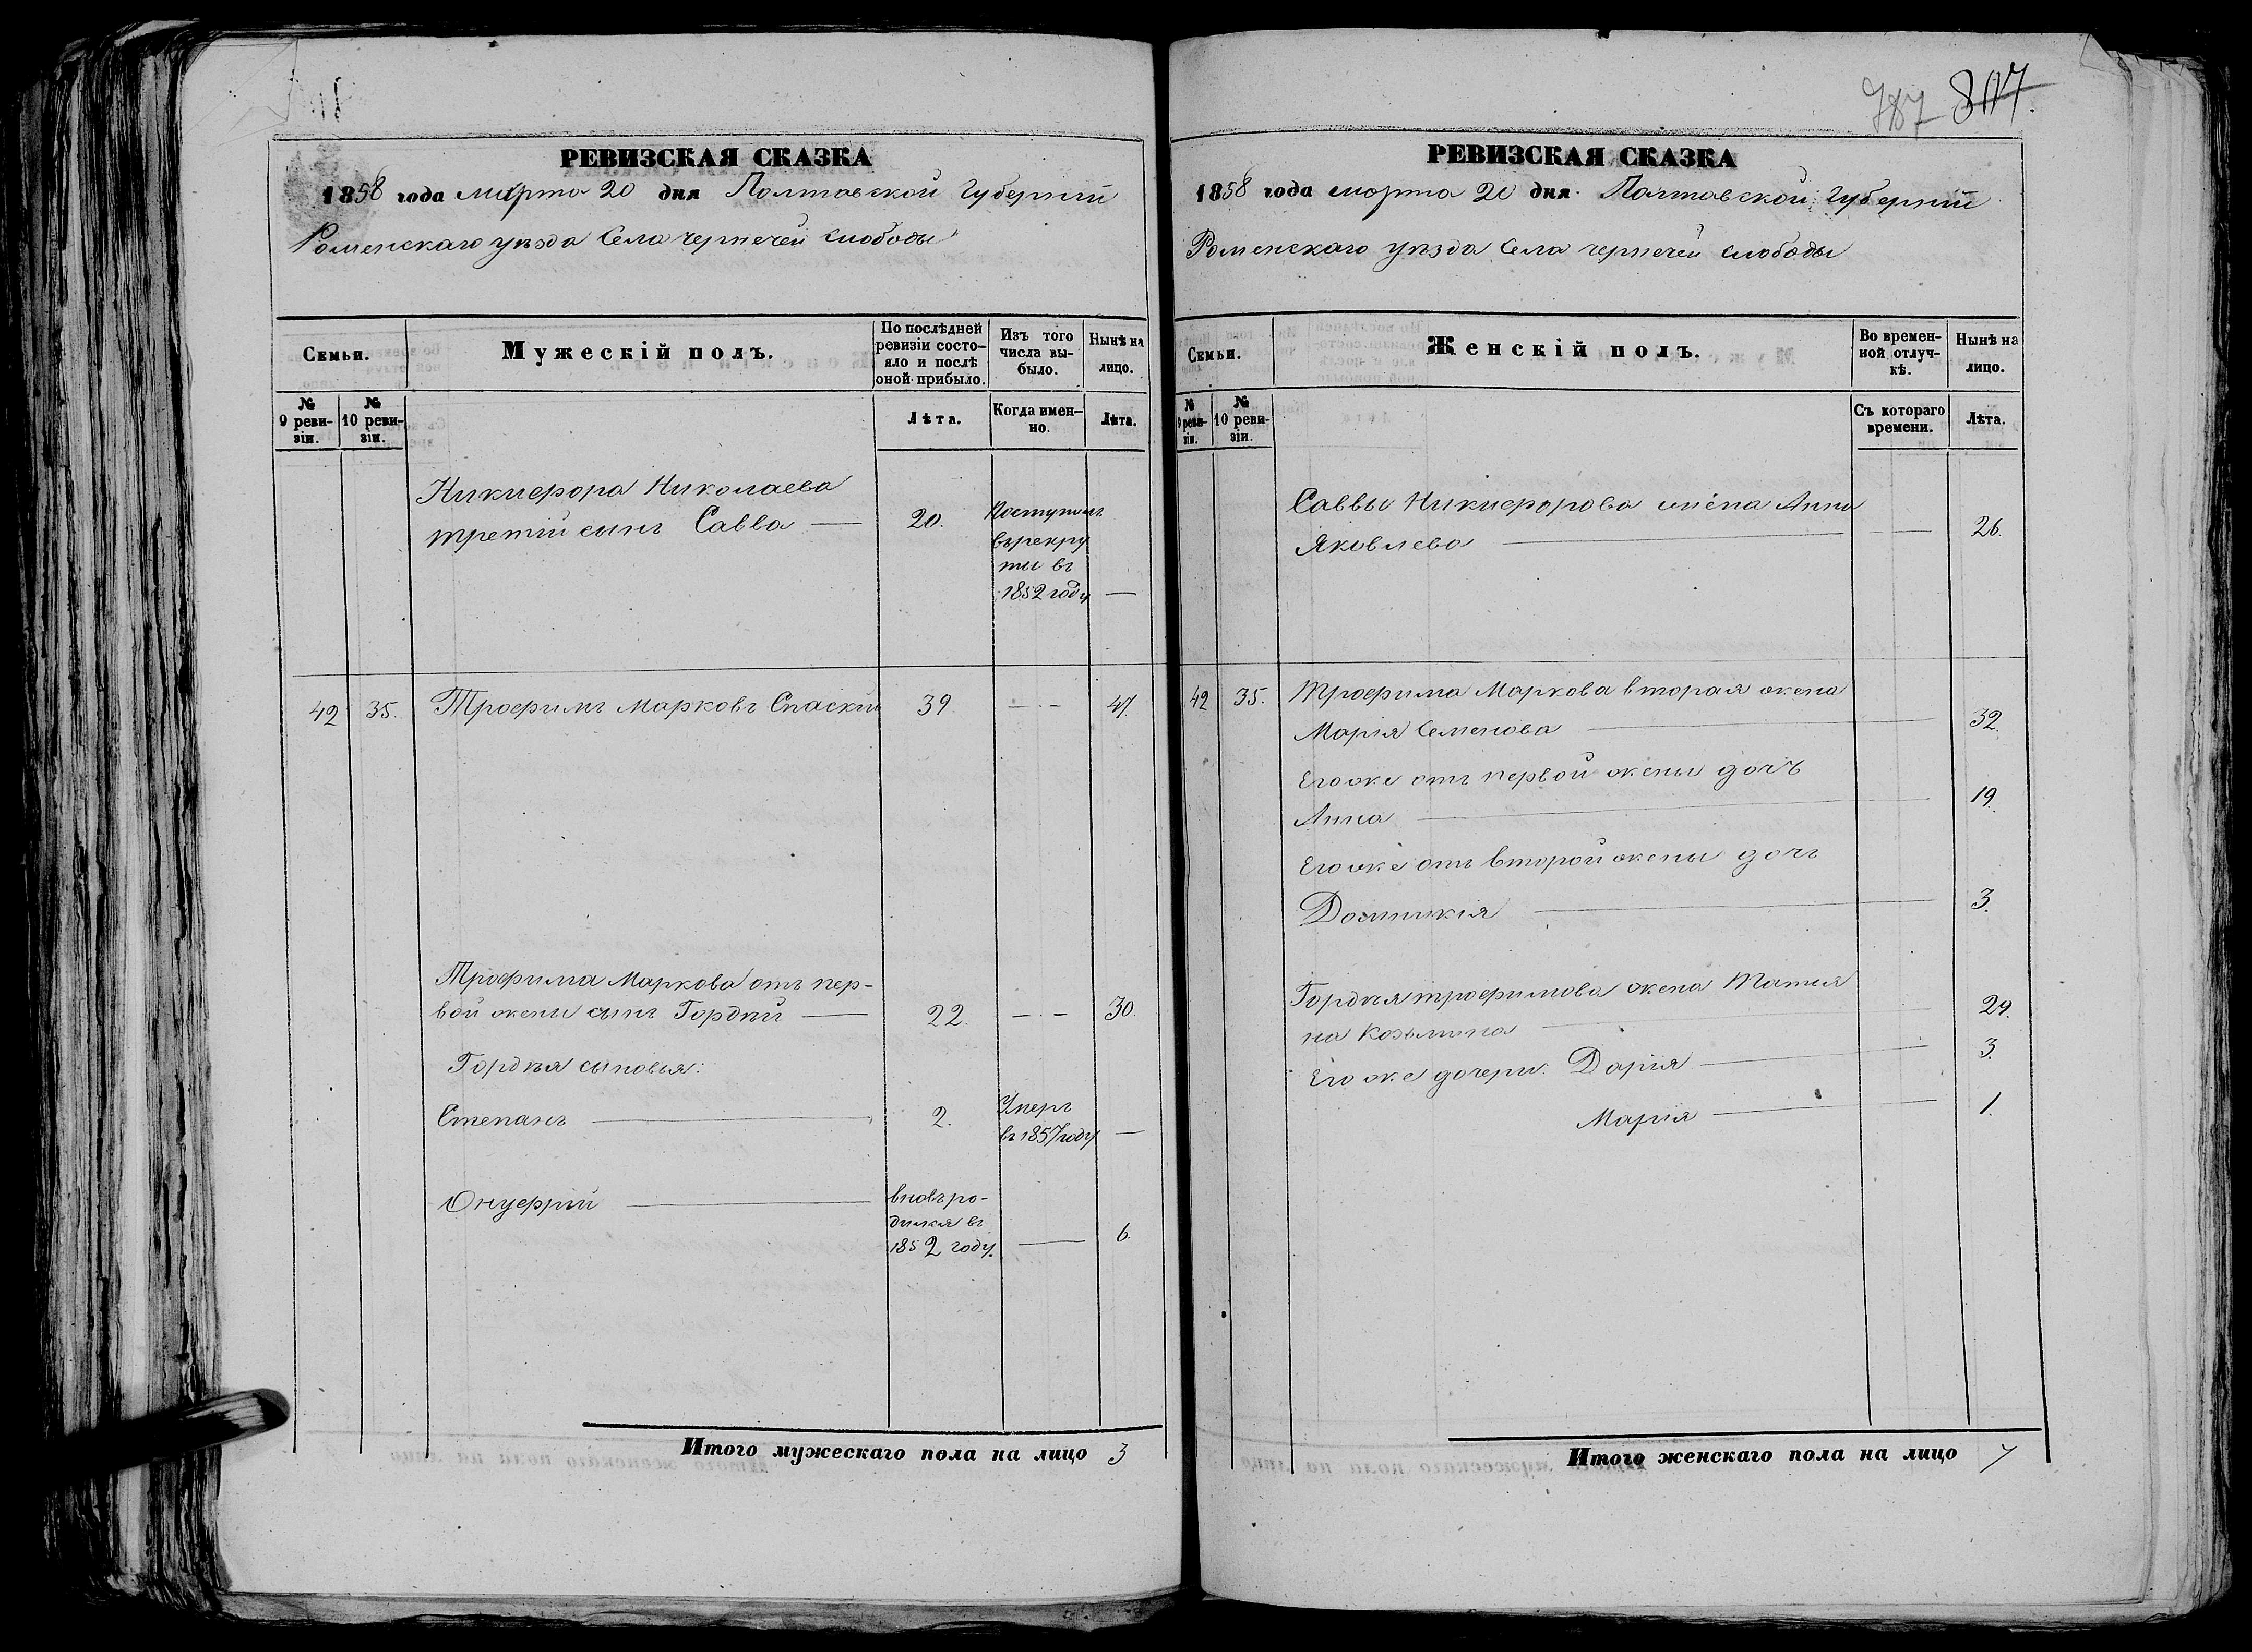 787 807.
РЕВИЗСКАЯ СКАЗКА
1858 года марта 20 дня Полтавской Губернiи
Роменскаго уѣзда Села чернечей слободы
Семьи.
Мужескiй полъ.
По послѣдней ревизiи состо-
яло и послѣ
оной прибыло.
Изъ того
числа вы-
было.
Нынѣ на
лицо.
№
9 реви-
зiи.
№
10 реви-
зiи.
Лѣта.
Когда имен-
но.
Лѣта.
Никифора Николаева
третiй сынъ Савва — 20. Поступилъ
въ рекру
ты въ
1852 году —
42 35. Трофимъ Марковъ Спаскiй 39 — 47.
Трофима Маркова отъ пер-
вой жены сынъ Гордѣй — 22. — 30.
Гордѣя сыновья:
Степанъ — 2. Умеръ
въ 1857 году —
Онуфрiй — вновь ро-
дился въ
1852 году. — 6.
Итого мужескаго пола на лицо 3
РЕВИЗСКАЯ СКАЗКА
1858 года марта 20 дня Полтавской Губернiи
Роменскаго уѣзда Села чернечей слободы
Семьи.
Женскiй полъ.
Во времен-
ной отлуч-
кѣ.
Нынѣ на
лицо.
№
9 реви-
зiи.
№
10 реви-
зiи.
Съ котораго
времени.
Лѣта.
Саввы Никифорова жена Анна
Яковлева — 26.
42 35. Трофима Маркова вторая жена
Марiя Семенова — 32.
Его же отъ первой жены дочь
Анна — 19.
Его же отъ второй жены дочь
Домникiя — 3.
Гордѣя трофимова жена Татья
на Козьмина — 29.
Его же дочери: Дарiя — 3.
Марiя — 1.
Итого женскаго пола на лицо 7